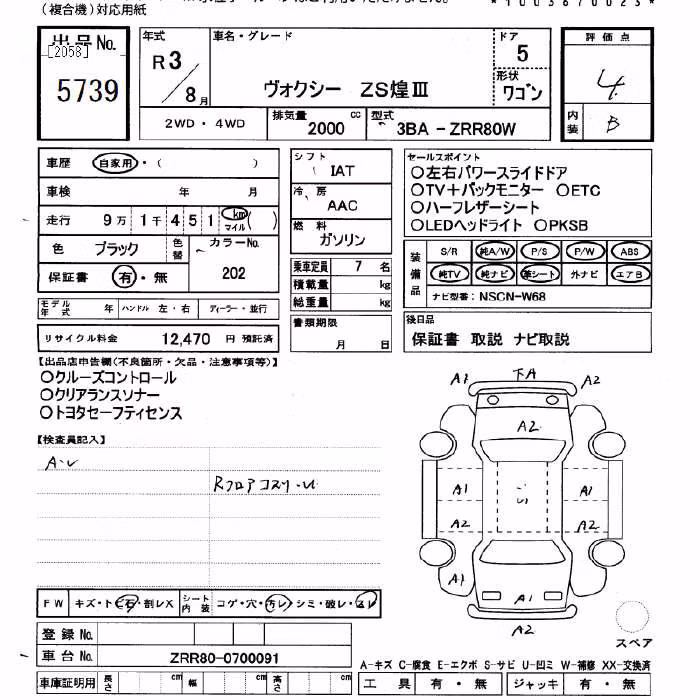 (複合機)対応用紙
*1003870023*
出品No.
[2058]
5739
年式
R3/8月
車名・グレード
ヴォクシー ZS煌Ⅲ
ドア
5
形状
ワゴン
評価点
4
内装
B
2WD・4WD
排気量
2000 cc
型式
3BA-ZRR80W
車歴 自家用・( )
車検 年 月
走行 9万1千451 km マイル ( )
色 ブラック
色替
カラーNo.
202
保証書 有・無
モデル年式 年 ハンドル 左・右 ディーラー・並行
リサイクル料金 12,470 円 預託済
シフト
IAT
冷房
AAC
燃料
ガソリン
乗車定員 7 名
積載量 kg
総重量 kg
書類期限
月 日
セールスポイント
○左右パワースライドドア
○TV+バックモニター ○ETC
○ハーフレザーシート
○LEDヘッドライト ○PKSB
装備品
S/R 純A/W P/S P/W ABS
純TV 純ナビ 革シート 外ナビ エアB
ナビ型番: NSCN-W68
後日品
保証書 取説 ナビ取説
【出品店申告欄(不良箇所・欠品・注意事項等)】
○クルーズコントロール
○クリアランスソナー
○トヨタセーフティセンス
【検査員記入】
A・U
Rフロアコスリ・U
A1 下A A2
A2
A1 A1
A2 A2
A1 A1
A1
A2
スペア
FW キズ・トビ石・割レX
シート内装 コゲ・穴・汚レ・シミ・破レ・スレ
登録No.
車台No. ZRR80-0700091
車庫証明用 長さ cm 幅 cm 高さ cm
A-キズ C-腐食 E-エクボ S-サビ U-凹ミ W-補修 XX-交換済
工具 有・無 ジャッキ 有・無